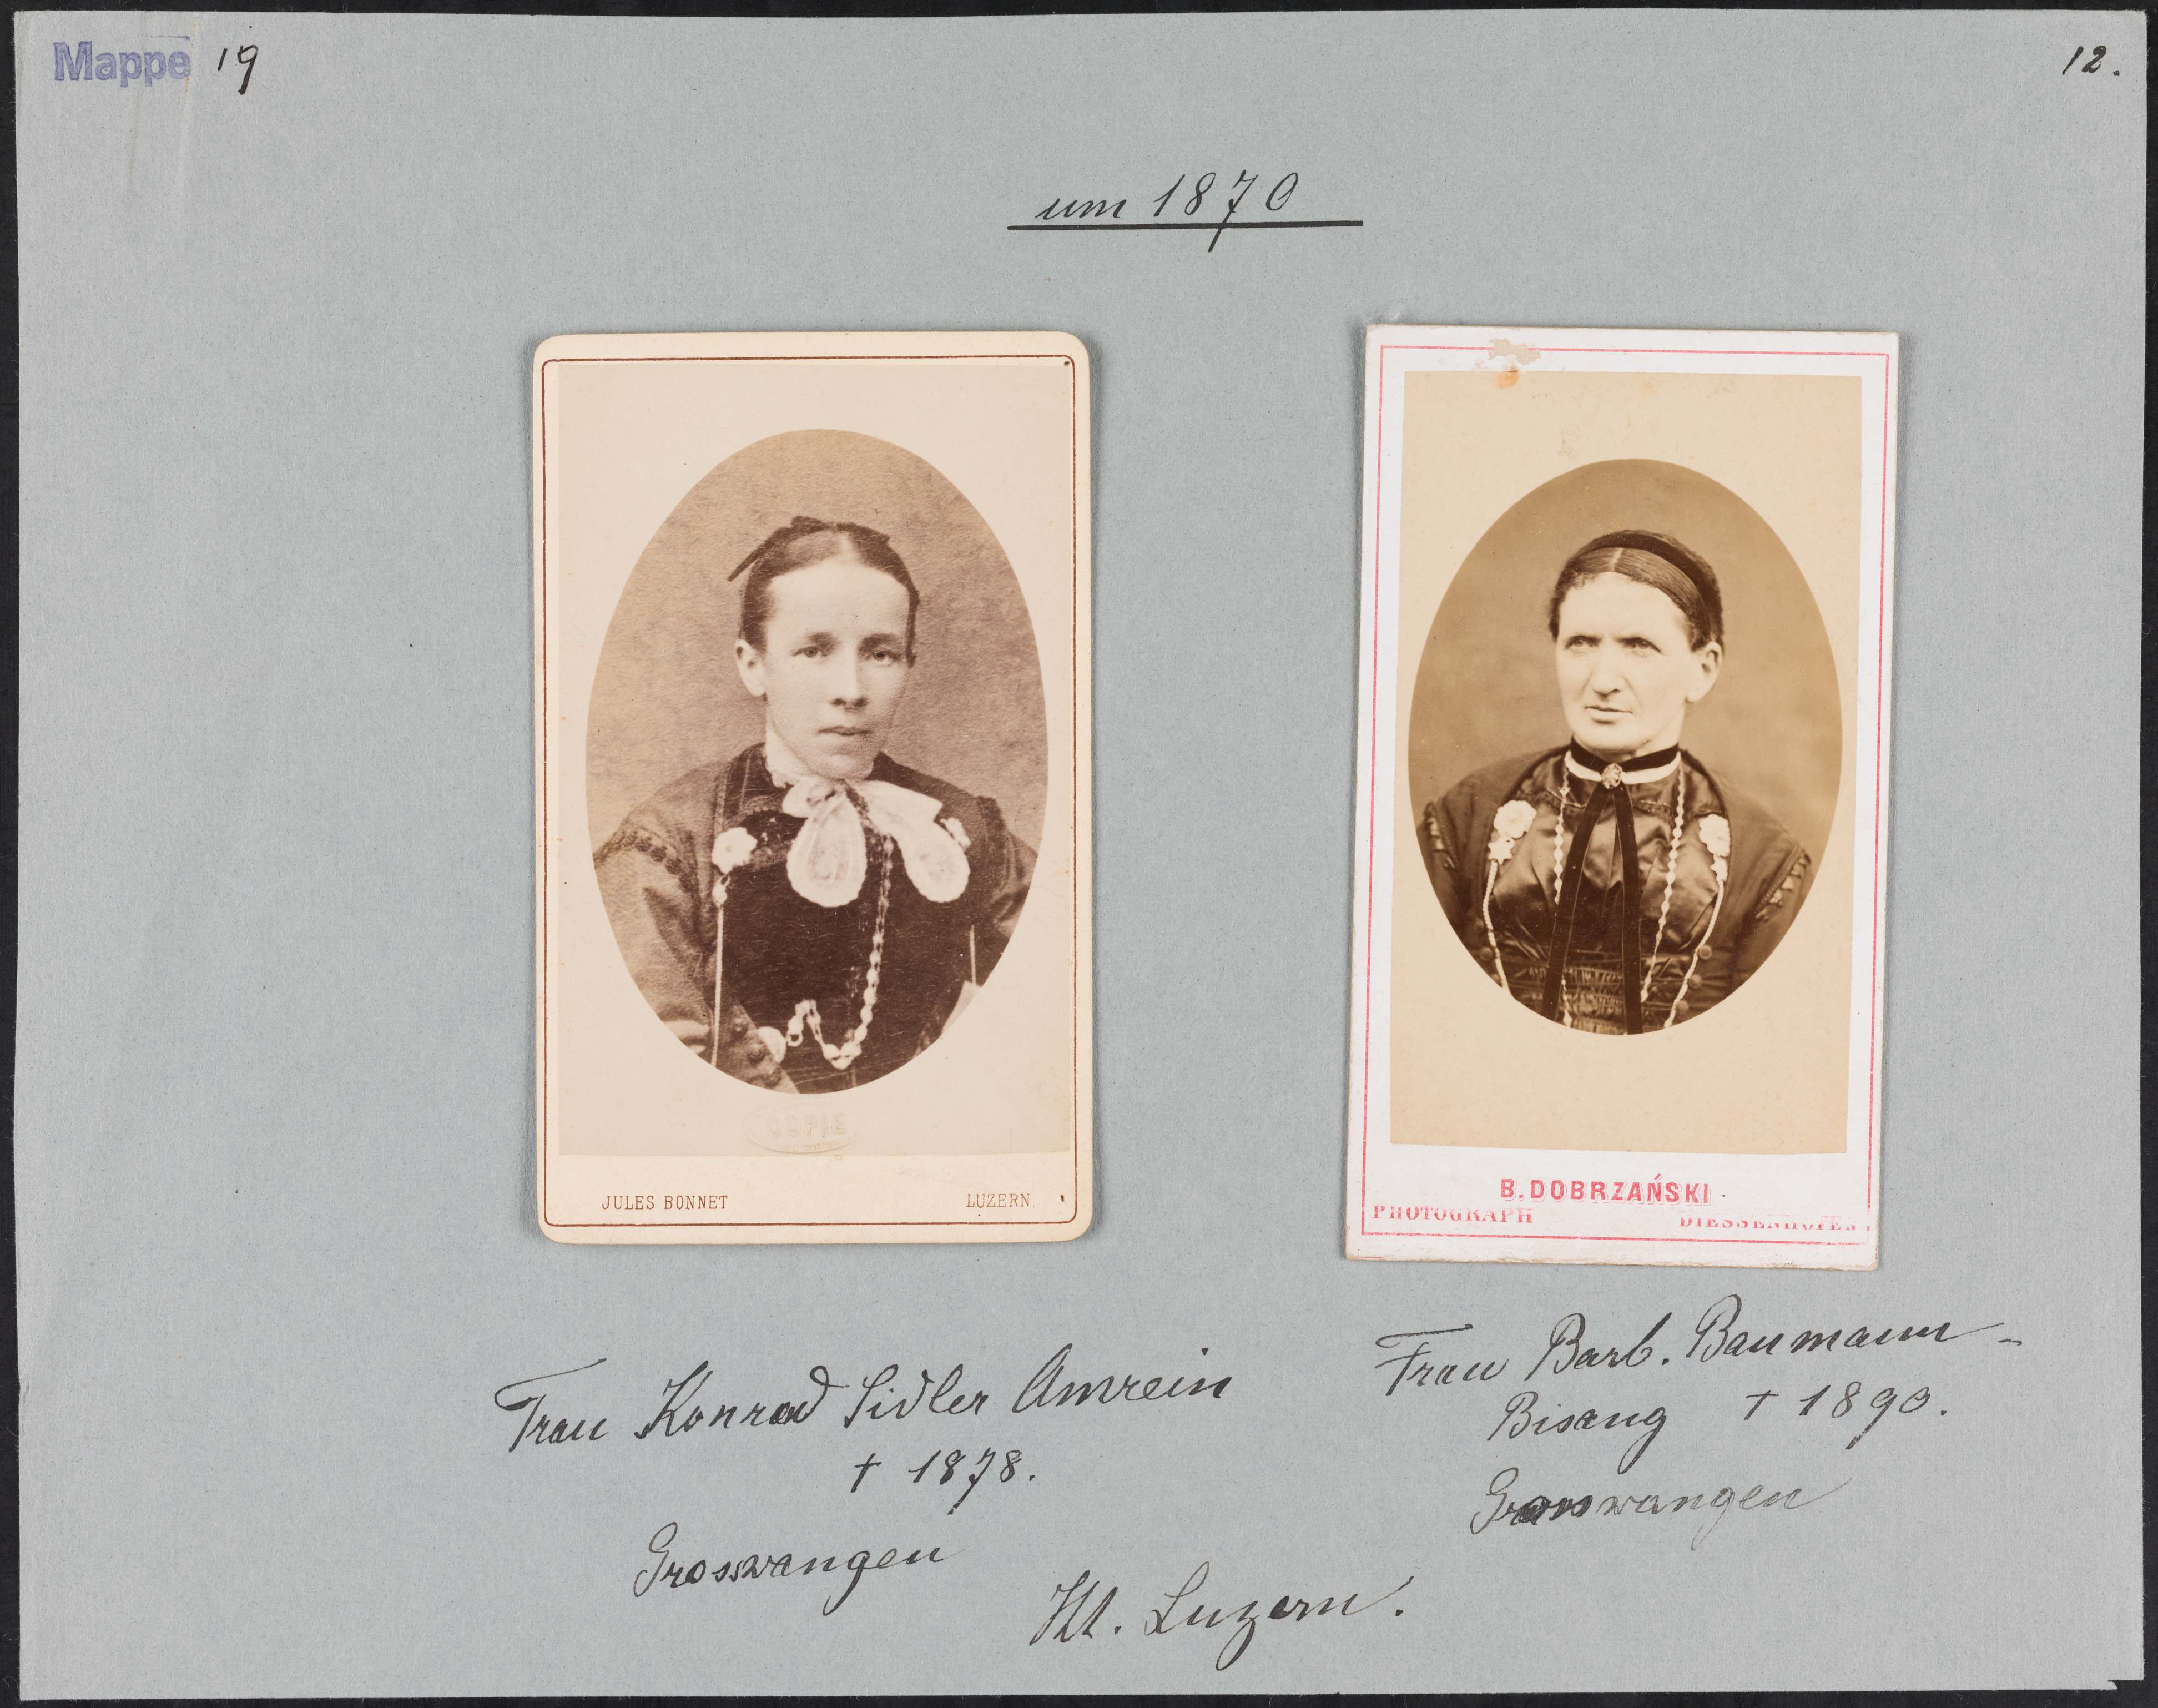 Mappe 19
12.
um 1870
COPIE
JULES BONNET LUZERN.
B. DOBRZAŃSKI
PHOTOGRAPH DIESSENHOFEN
Frau Konrad Sidler Amrein
† 1878.
Grosswangen
Frau Barb. Baumann-
Bisang † 1890.
Grosswangen
Kt. Luzern.